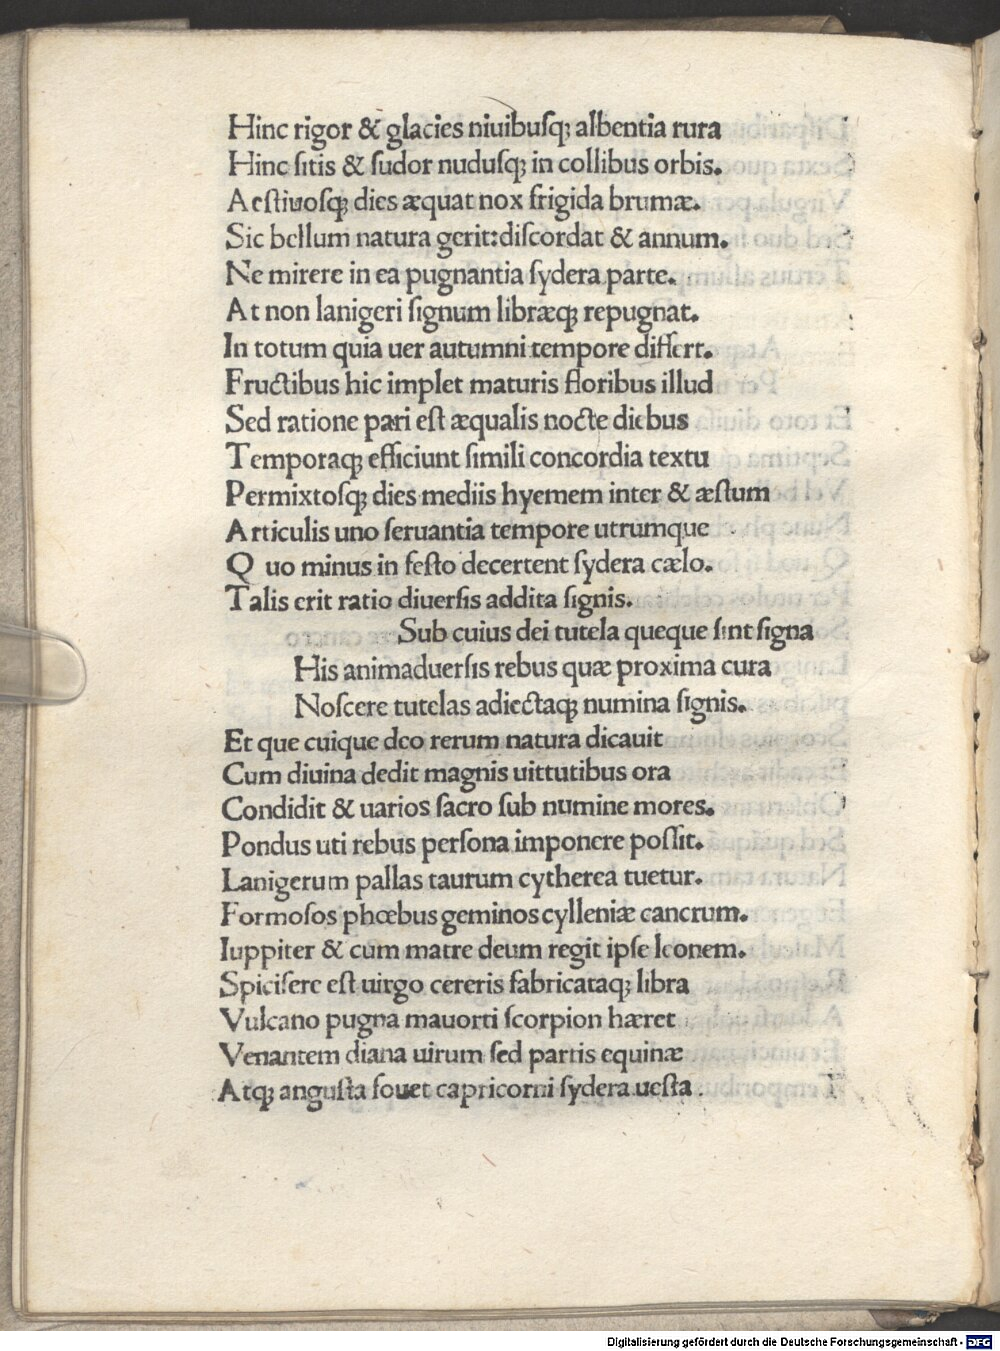 Hinc rigor & glacies niuibuſqꝫ albentia rura
Hinc ſitis & ſudor nuduſqꝫ in collibus orbis.
Aeſtiuoſqꝫ dies æquat nox frigida brumæ.
Sic bellum natura gerit:diſcordat & annum.
Ne mirere in ea pugnantia ſydera parte.
At non lanigeri ſignum libræqꝫ repugnat.
In totum quia uer autumni tempore differt.
Fructibus hic implet maturis floribus illud
Sed ratione pari eſt æqualis nocte diebus
Temporaqꝫ efficiunt ſimili concordia textu
Permixtoſqꝫ dies mediis hyemem inter & æſtum
Articulis uno ſeruantia tempore utrumque
Quo minus in feſto decertent ſydera cælo.
Talis erit ratio diuerſis addita ſignis.
Sub cuius dei tutela queque ſint ſigna
His animaduerſis rebus quæ proxima cura
Noſcere tutelas adiectaqꝫ numina ſignis.
Et que cuique deo rerum natura dicauit
Cum diuina dedit magnis uittutibus ora
Condidit & uarios ſacro ſub numine mores.
Pondus uti rebus perſona imponere poſſit.
Lanigerum pallas taurum cytherea tuetur.
Formoſos phœbus geminos cylleniæ cancrum.
Iuppiter & cum matre deum regit ipſe leonem.
Spicifere eſt uirgo cereris fabricataqꝫ libra
Vulcano pugna mauorti ſcorpion hæret
Venantem diana uirum ſed partis equinæ
Atqꝫ anguſta fouet capricorni ſydera ueſta.
Digitalisierung gefördert durch die Deutsche Forschungsgemeinschaft - DFG